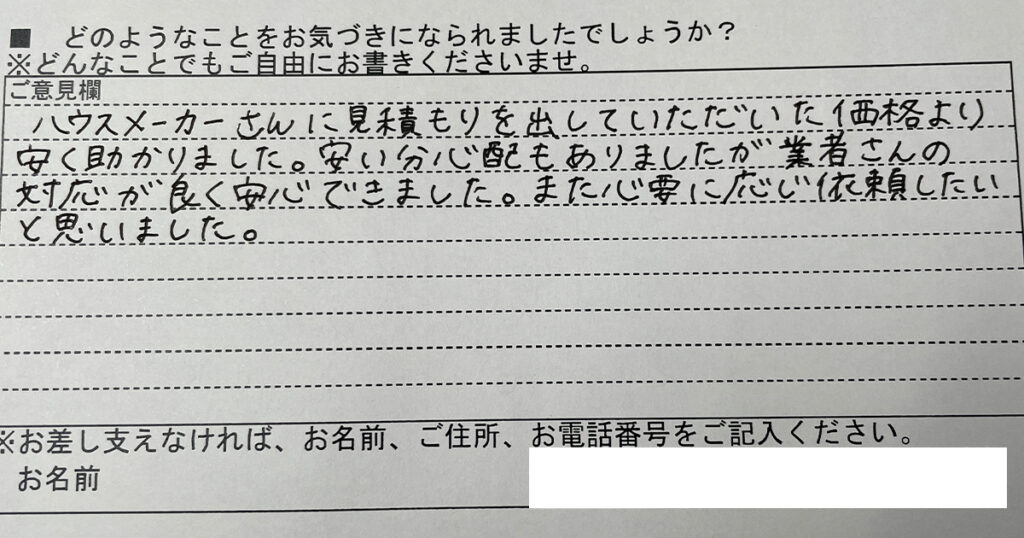 ■ どのようなことをお気づきになられましたでしょうか？
※どんなことでもご自由にお書きくださいませ。
ご意見欄
ハウスメーカーさんに見積もりを出していただいた価格より
安く助かりました。安い分心配もありましたが業者さんの
対応が良く安心できました。また必要に応じ依頼したい
と思いました。
※お差し支えなければ、お名前、ご住所、お電話番号をご記入ください。
お名前